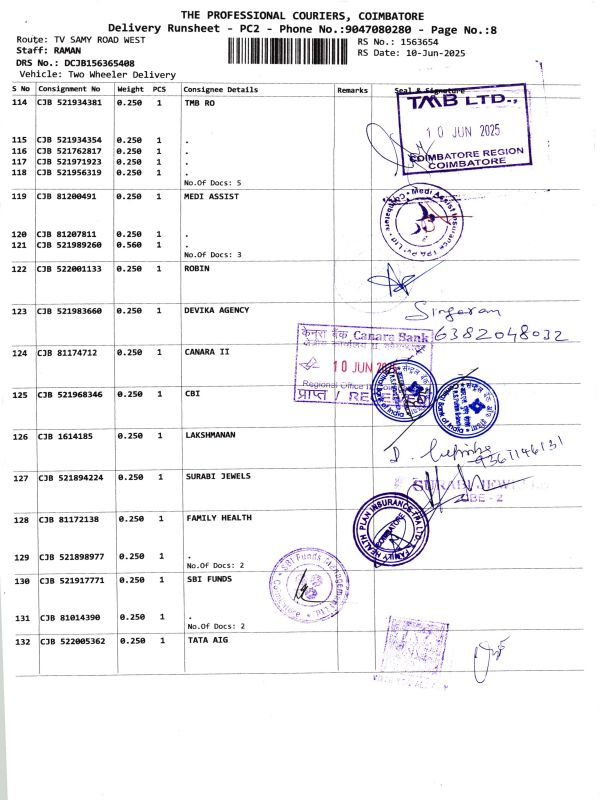 THE PROFESSIONAL COURIERS, COIMBATORE
Delivery Runsheet - PC2 - Phone No.:9047080280 - Page No.:8
Route: TV SAMY ROAD WEST
Staff: RAMAN
DRS No.: DCJB156365408
Vehicle: Two Wheeler Delivery
RS No.: 1563654
RS Date: 10-Jun-2025
S No Consignment No Weight PCS Consignee Details Remarks Seal & Signature
114 CJB 521934381 0.250 1 TMB RO
TMB LTD.,
10 JUN 2025
COIMBATORE REGION
COIMBATORE
115 CJB 521934354 0.250 1 .
116 CJB 521762817 0.250 1 .
117 CJB 521971923 0.250 1 .
118 CJB 521956319 0.250 1 .
No.Of Docs: 5
119 CJB 81200491 0.250 1 MEDI ASSIST
Medi Assist Insurance TPA Pvt Ltd * Coimbatore *
120 CJB 81207811 0.250 1 .
121 CJB 521989260 0.560 1 .
No.Of Docs: 3
122 CJB 522001133 0.250 1 ROBIN
123 CJB 521983660 0.250 1 DEVIKA AGENCY
6382048032
केनरा बैंक Canara Bank
10 JUN
Regional Office
प्राप्त /
124 CJB 81174712 0.250 1 CANARA II
125 CJB 521968346 0.250 1 CBI
126 CJB 1614185 0.250 1 LAKSHMANAN
9367146131
127 CJB 521894224 0.250 1 SURABI JEWELS
SURABI
CBE - 2
128 CJB 81172138 0.250 1 FAMILY HEALTH
FAMILY HEALTH PLAN INSURANCE TPA LTD.
COIMBATORE
129 CJB 521898977 0.250 1 .
No.Of Docs: 2
130 CJB 521917771 0.250 1 SBI FUNDS
SBI Funds Management Ltd
131 CJB 81014390 0.250 1 .
No.Of Docs: 2
132 CJB 522005362 0.250 1 TATA AIG